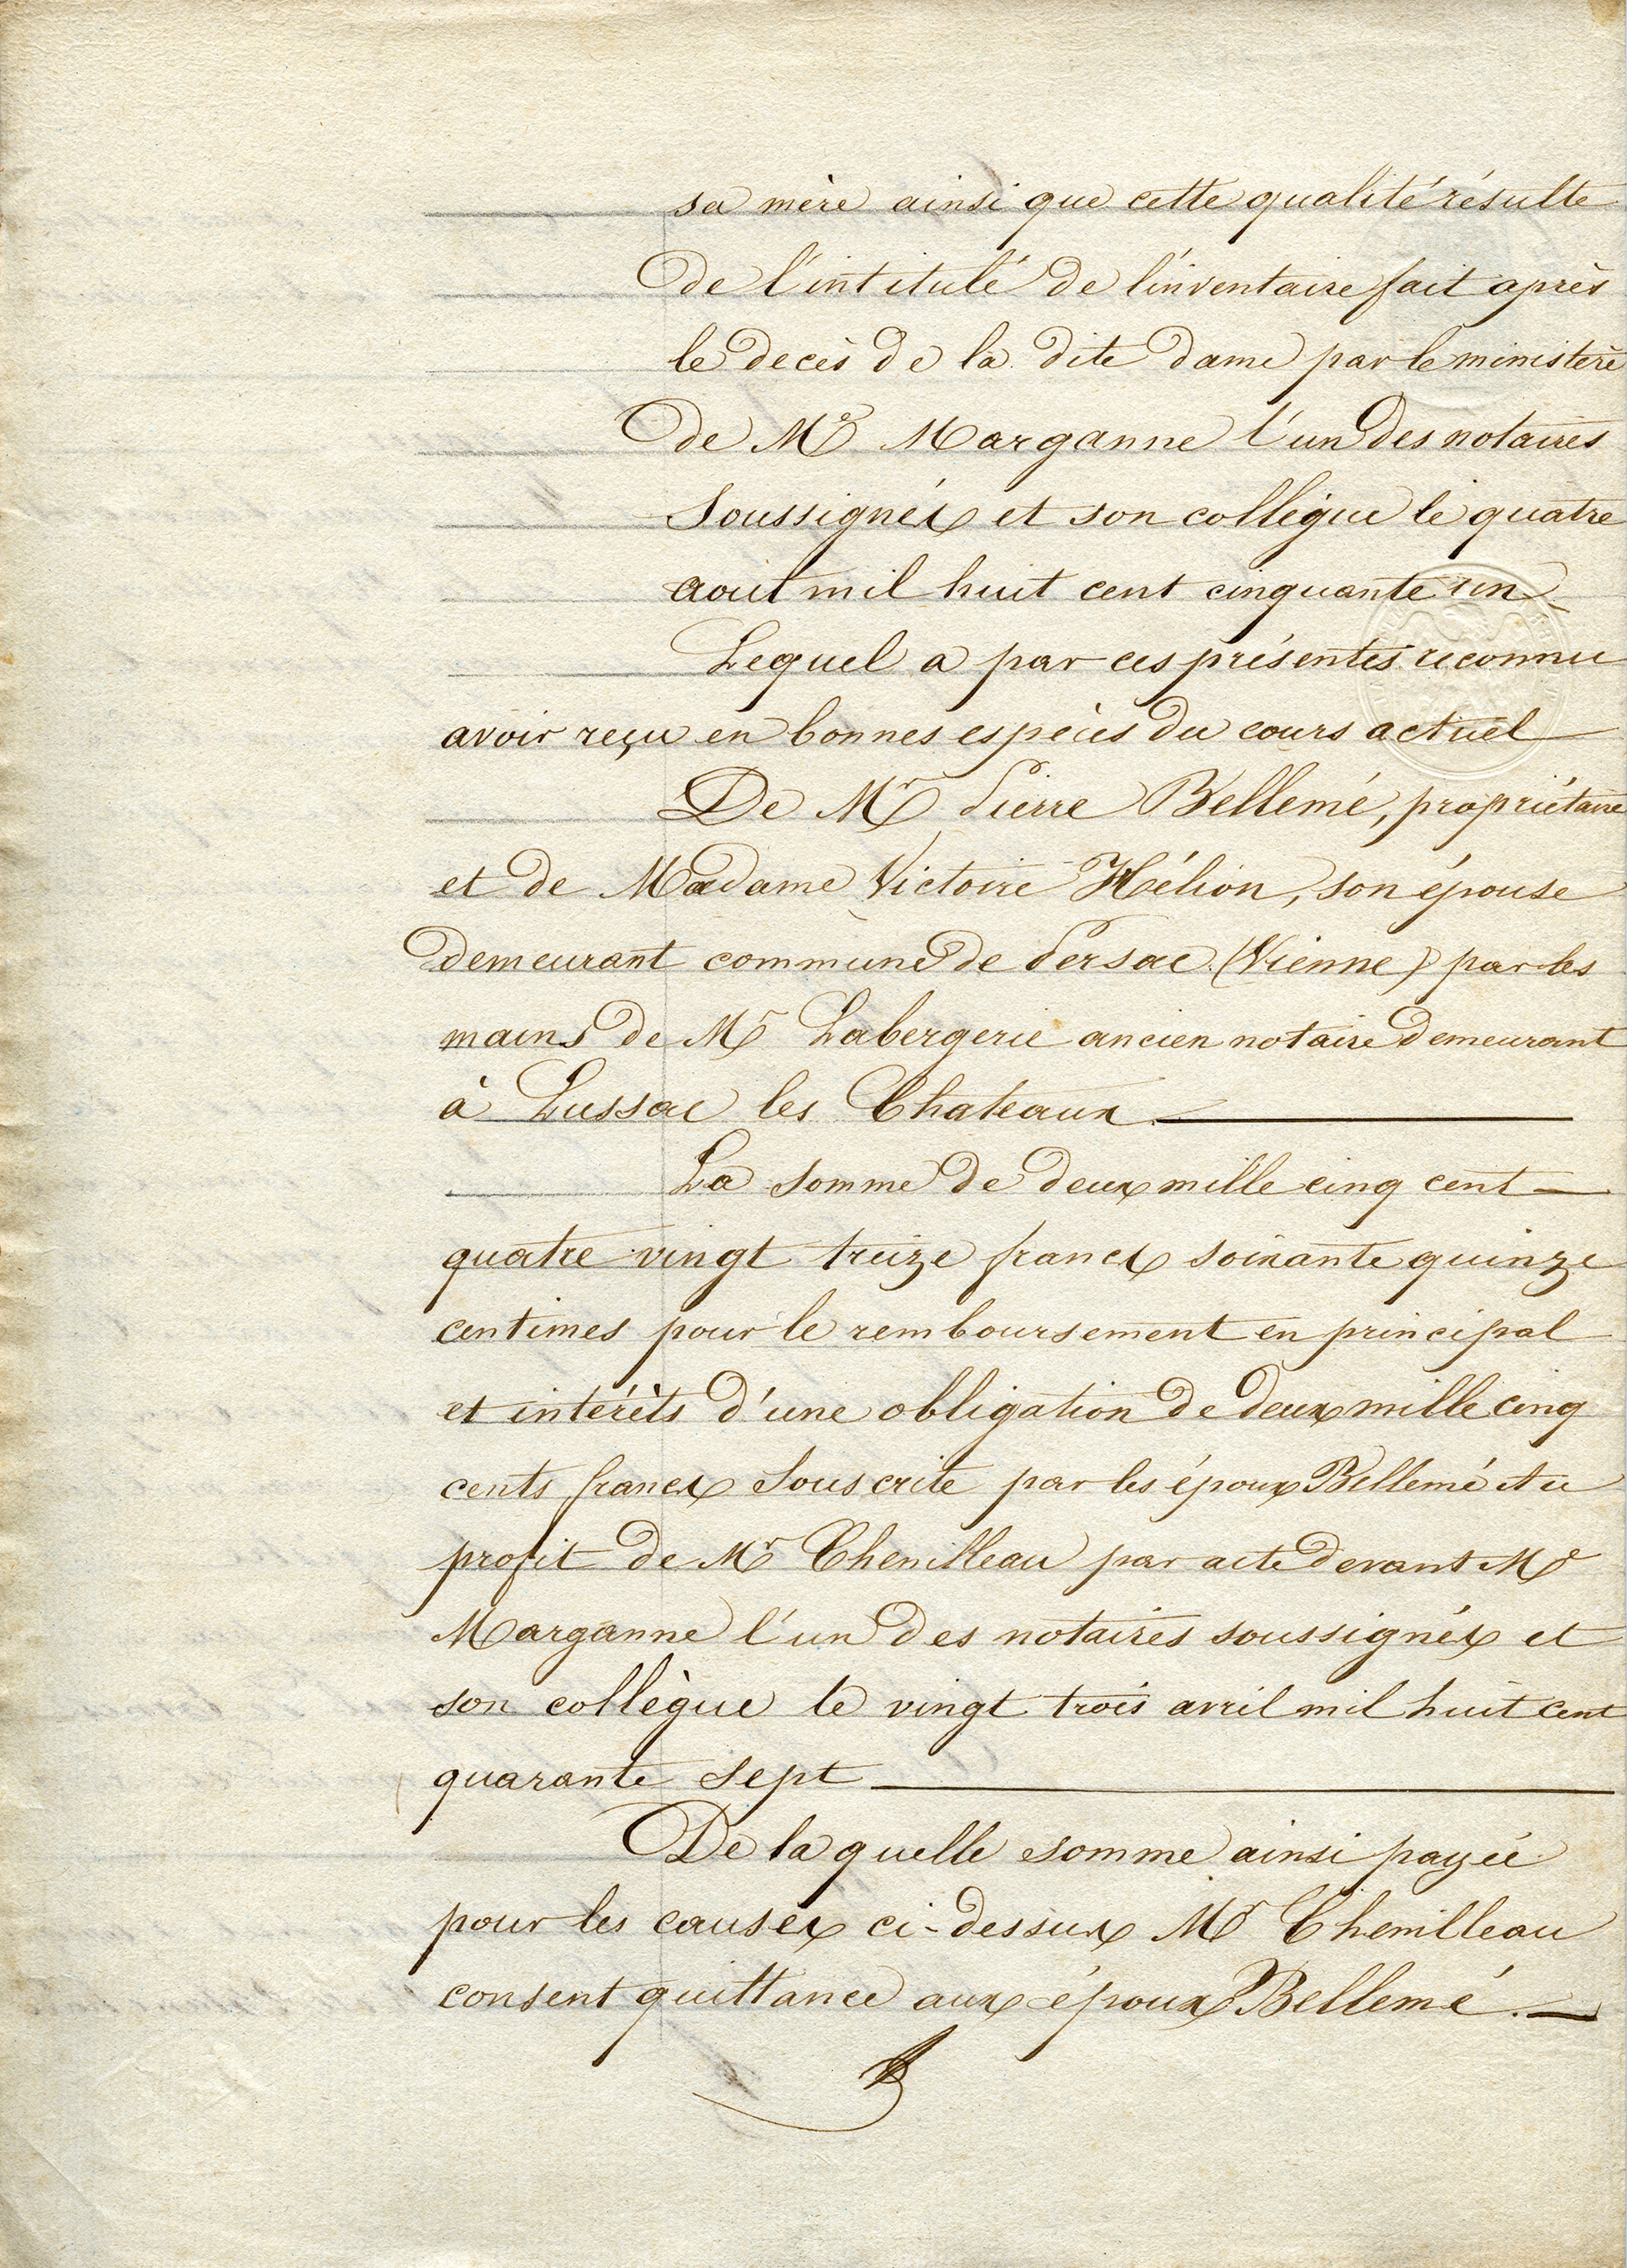 sa mère ainsi que cette qualité résulte
de l'intitulé de l'inventaire fait après
le decès de la dite dame par le ministère
de Me Marganne l'un des notaires
soussignés et son collègue le quatre
aout mil huit cent cinquante un
Lequel a par ces présentes reconnu
avoir reçu en bonnes espèces du cours actuel
De Mr Pierre Bellemé, propriétaire
et de Madame Victoire Hélion, son épouse
demeurant commune de Persac (Vienne) par les
mains de Mr Labergerie ancien notaire demeurant
à Lussac les Chateaux.
La somme de deux mille cinq cent
quatre vingt treize francs soixante quinze
centimes pour le remboursement en principal
et intérèts d'une obligation de deux mille cinq
cents francs souscrite par les époux Bellemé Au
profit de Mr Chenilleau par acte devant Me
Marganne l'un des notaires soussignés et
son collègue le vingt trois avril mil huit cent
quarante sept
De laquelle somme ainsi payée
pour les causes ci-dessus Mr Chenilleau
consent quittance aux époux Bellemé.